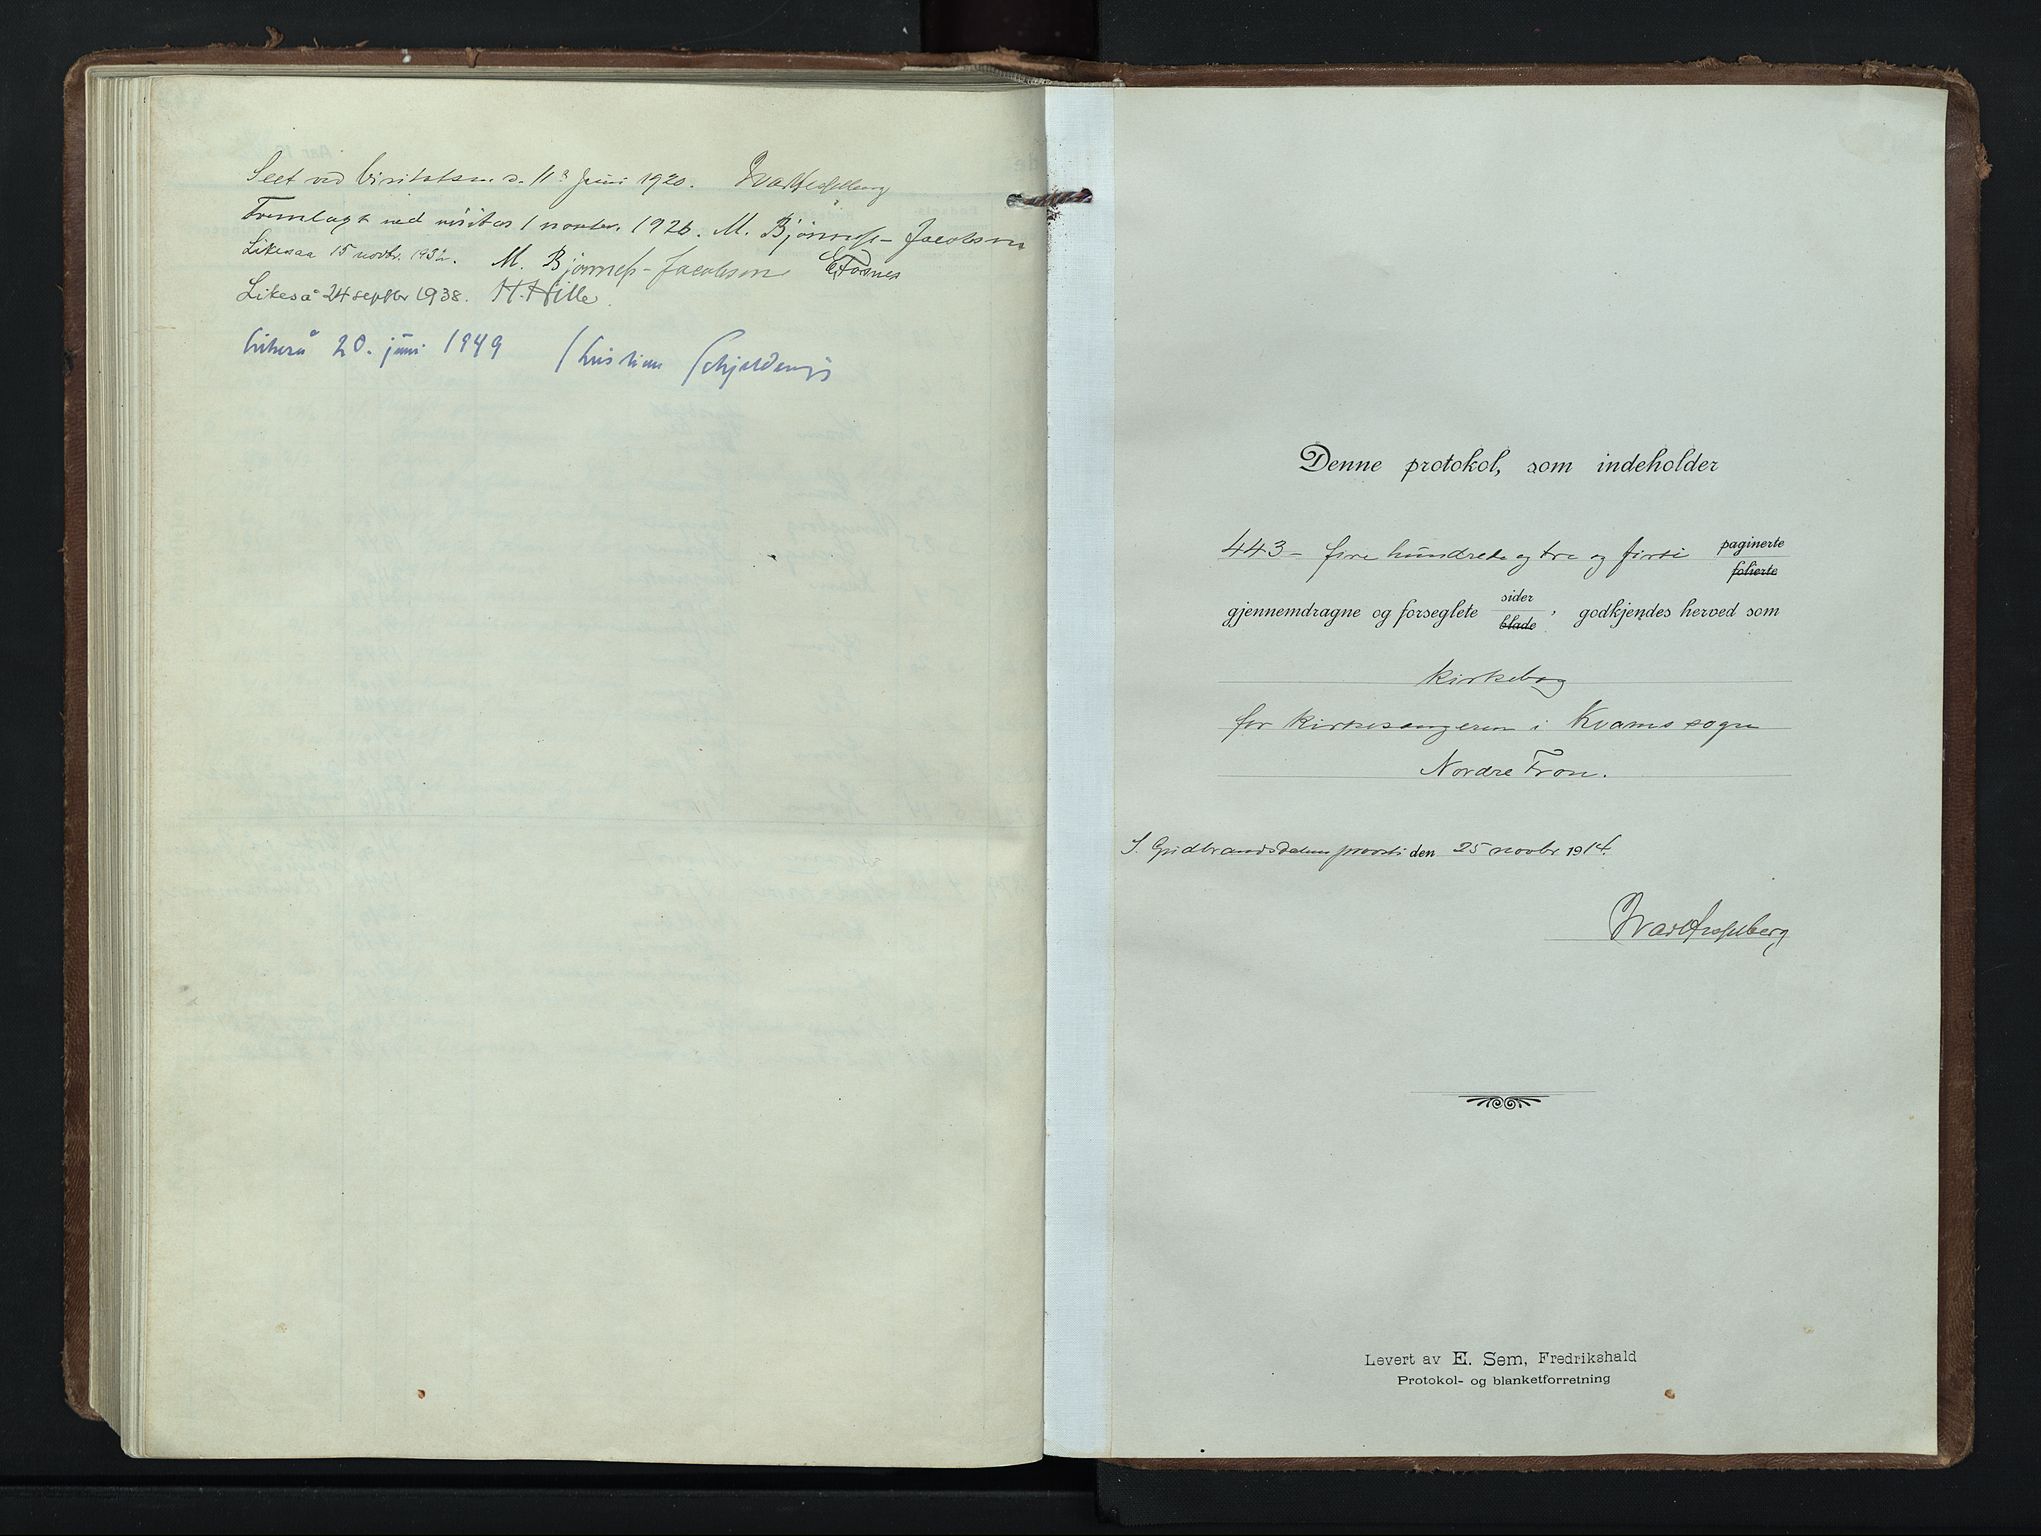 Seet ved Visitatsen d. 11 Juni 1920. Ivar Hesselberg
Fremlagt ved visitas 1 novbr. 1926. M. Bjønness-Jacobsen
Likesaa 15 novbr. 1932. M. Bjønness-Jacobsen E. Fosnes
Likeså 24 septbr 1938. H. Hille.
Likeså 20. juni 1949 Kristian Schjelderup
Denne protokol, som indeholder
443 - fire hundrede og tre og firti paginerte
folierte
gjennemdragne og forseglete sider
blade, godkjendes herved som
kirkebog
for kirkesangeren i Kvams sogn
Nordre Fron.
S. Gudbrandsdalens provsti den 25 novbr 1914.
Ivar Hesselberg
Levert av E. Sem, Fredrikshald
Protokol- og blanketforretning